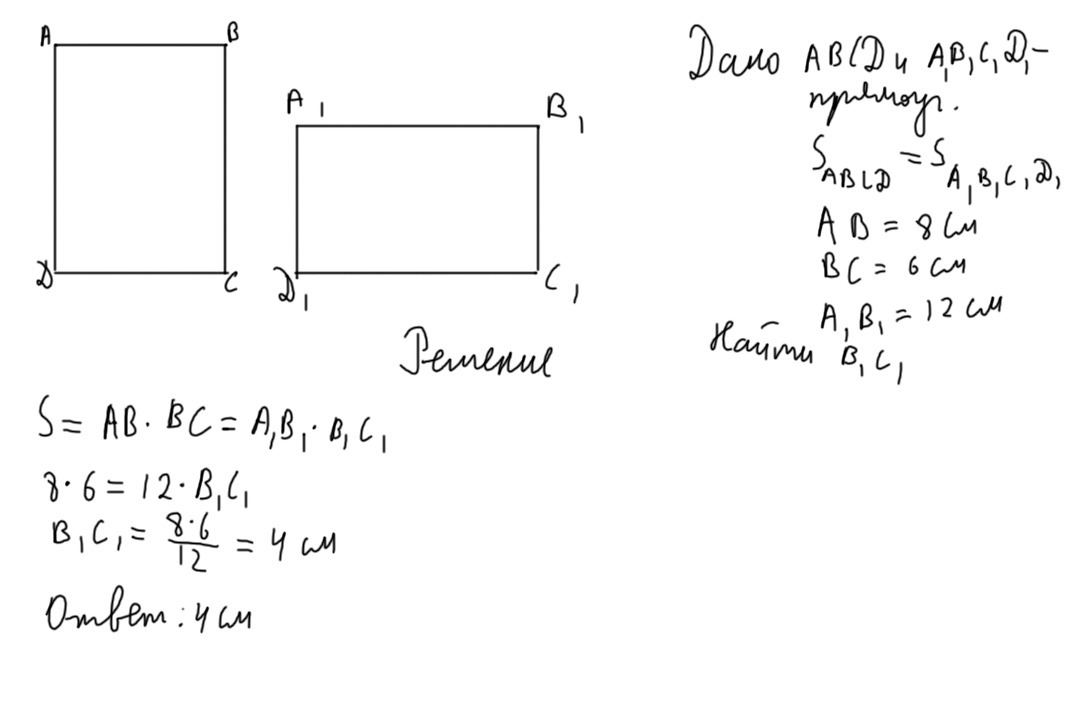 A B
D C
A₁ B₁
D₁ C₁
Дано ABCD и A₁B₁C₁D₁ -
прямоуг.
S_ABCD = S_A₁B₁C₁D₁
AB = 8 см
BC = 6 см
A₁B₁ = 12 см
Найти B₁C₁
Решение
S = AB · BC = A₁B₁ · B₁C₁
8 · 6 = 12 · B₁C₁
B₁C₁ = 8·6/12 = 4 см
Ответ: 4 см